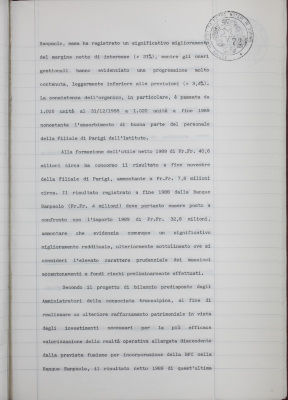 Sanpaolo, mena ha registrato un significativo miglioramento
del margine netto di interesse (+ 21%), mentre gli oneri
gestionali hanno evidenziato una progressione molto
contenuta, leggermente inferiore alle previsioni (+ 3,8%).
La consistenza dell'organico, in particolare, è passata da
1.010 unità al 31/12/1988 a 1.020 unità a fine 1989
nonostante l'assorbimento di buona parte del personale
della Filiale di Parigi dell'Istituto.
Alla formazione dell'utile netto 1989 di Fr.Fr. 40,6
milioni circa ha concorso il risultato a fine novembre
della Filiale di Parigi, ammontante a Fr.Fr. 7,8 milioni
circa. Il risultato registrato a fine 1988 dalla Banque
Sanpaolo (Fr.Fr. 4 milioni) deve pertanto essere posto a
confronto con l'importo 1989 di Fr.Fr. 32,8 milioni,
ammontare che evidenzia comunque un significativo
miglioramento reddituale, ulteriormente sottolineato ove si
consideri l'elevato carattere prudenziale dei massicci
accantonamenti a fondi rischi preliminarmente effettuati.
Secondo il progetto di bilancio predisposto dagli
Amministratori della consociata transalpina, al fine di
realizzare un ulteriore rafforzamento patrimoniale in vista
degli investimenti necessari per la più efficace
valorizzazione della realtà operativa allargata discendente
dalla prevista fusione per incorporazione della BFC nella
Banque Sanpaolo, il risultato netto 1989 di quest'ultima